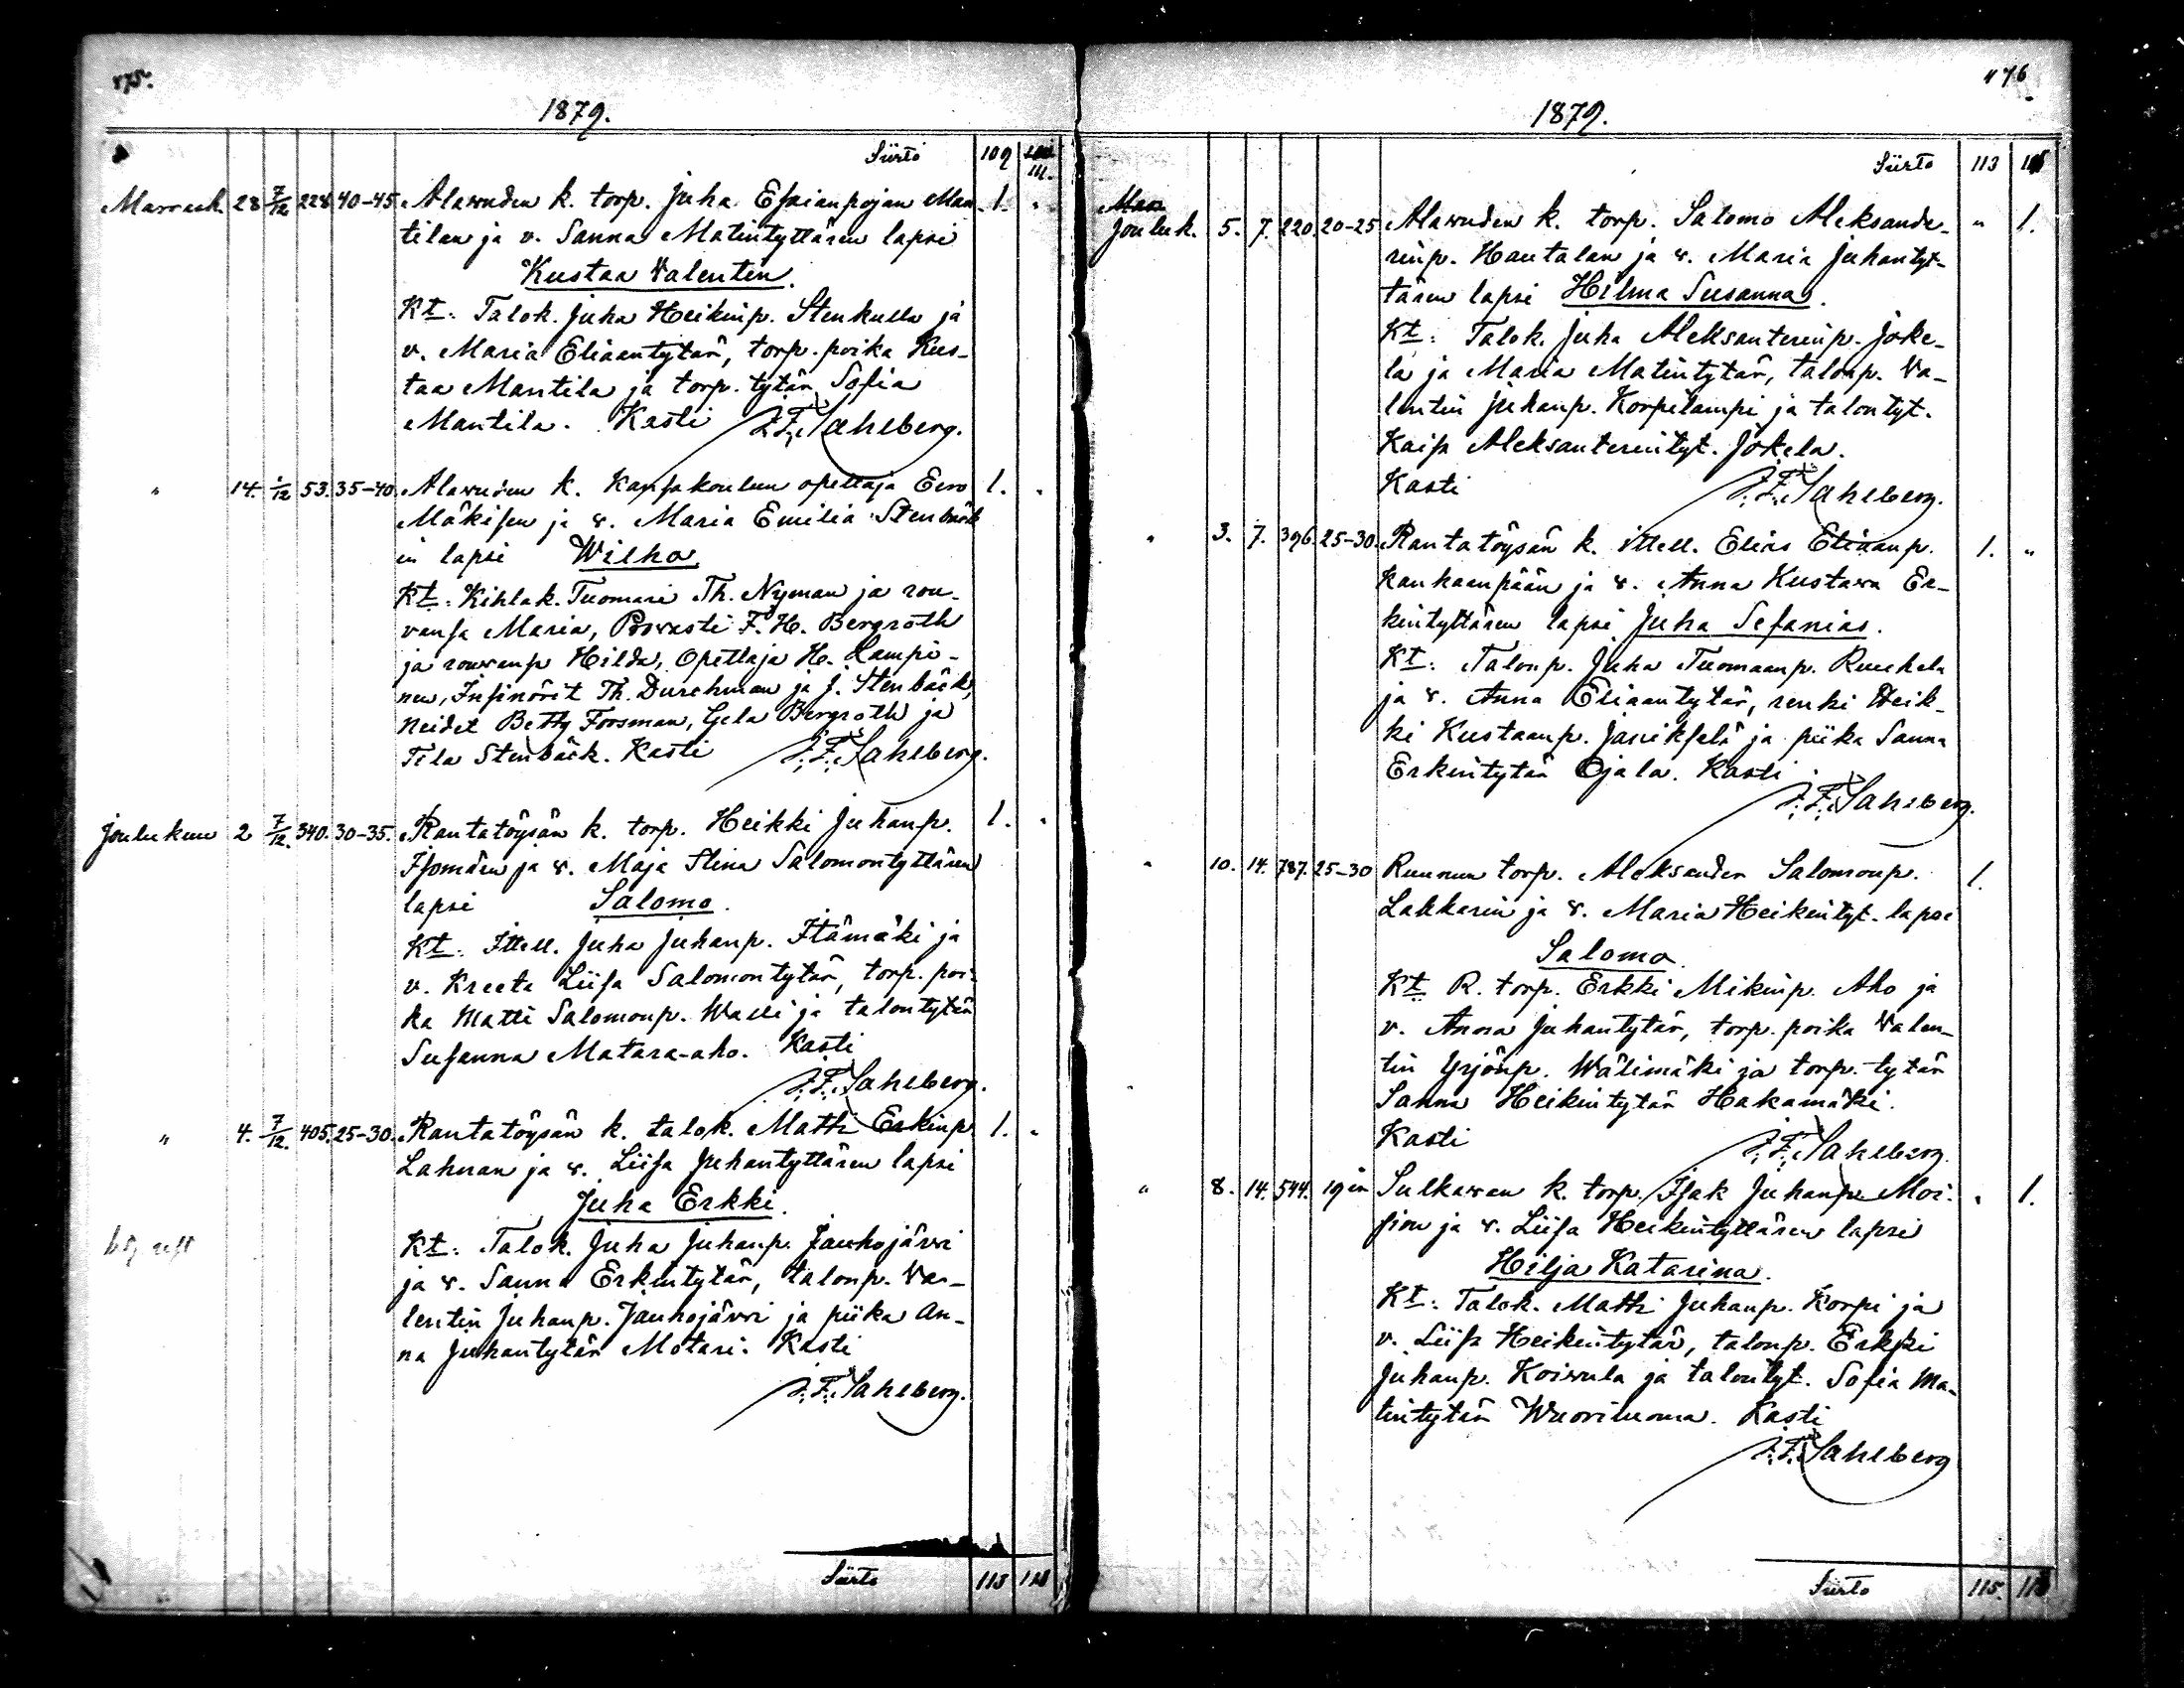 475.
1879.
Siirto 109 111.
Marrask. 28 7/12 228 40-45 Alawuden k. torp. Juha Esaianpojan Man- 1. "
tilan ja v. Sanna Matintyttären lapsi
Kustaa Valentin.
Kt: Talok. Juha Heikinp. Stenkulla ja
v. Maria Eliaantytär, torp. poika Kus-
taa Mantila ja torp. tytär Sofia
Mantila. Kasti J. F. Sahlberg.
" 14. 1/12 53. 35-40 Alawuden k. Kansakoulun opettaja Eero 1. "
Mäkisen ja v. Maria Emilia Stenbäck
in lapsi Wilho.
Kt: Kihlak. Tuomari Th. Nyman ja rou-
vansa Maria, Prowasti F. H. Bergroth
ja rouwansa Hilda, Opettaja H. Lampi-
nen, Insinörit Th. Durchman ja J. Stenbäck,
Neidet Betty Forsman, Gela Bergroth ja
Tila Stenbäck. Kasti J. F. Sahlberg.
Joulukuu 2 7/12. 340. 30-35. Rantatöysän k. torp. Heikki Juhanp. 1. "
Isomäen ja v. Maja Stina Salomontyttären
lapsi Salomo.
Kt: Ittell. Juha Juhanp. Itämäki ja
v. Kreeta Liisa Salomontytär, torp. poi-
ka Matti Salomonp. Walli ja talontytär
Susanna Matara-aho. Kasti
J. F. Sahlberg.
" 4. 7/12. 405. 25-30. Rantatöysän k. talok. Matti Erkinp. 1. "
Lahnan ja v. Liisa Juhantyttären lapsi
Juha Erkki.
Kt: Talok. Juha Juhanp. Jauhojärvi
ja v. Sanna Erkintytär, talonp. Va-
lentin Juhanp. Jauhojärvi ja piika An-
na Juhantytär Mötari. Kasti
J. F. Sahlberg.
Siirto 113
476
1879.
Siirto 113
Jouluk. 5. 7. 220. 20-25 Alawuden k. torp. Salomo Aleksande- " 1.
rinp. Hautalan ja v. Maria Juhantyt-
tären lapsi Hilma Susanna.
Kt: Talok. Juha Aleksanterinp. Joke-
la ja Maria Matintytär, talonp. Va-
lentin Juhanp. Korpilampi ja talontyt.
Kaisa Aleksanterintyt. Jokela.
Kasti J. F. Sahlberg.
" 3. 7. 396. 25-30. Rantatöysän k. ittell. Elias Eliaanp. 1. "
Kankaanpään ja v. Anna Kustawa Er-
kintyttären lapsi Juha Sefanias.
Kt: Talonp. Juha Tuomaanp. Ruuhela
ja v. Anna Eliaantytär, renki Heik-
ki Kustaanp. Jänikselä ja piika Sanna
Erkintytär Ojala. Kasti
J. F. Sahlberg.
" 10. 14. 787. 25-30 Ruunun torp. Aleksander Salomonp. 1.
Lakkarin ja v. Maria Heikintyt. lapsi
Salomo.
Kt: R. torp. Erkki Mikinp. Aho ja
v. Anna Juhantytär, torp. poika Valen-
tin Yrjönp. Wälimäki ja torp. tytär
Sanna Heikintytär Hakamäki.
Kasti J. F. Sahlberg.
" 8. 14. 544. 19 in Sulkawan k. torp. Isak Juhanp. Moi- " 1.
sion ja v. Liisa Heikintyttären lapsi
Hilja Katarina.
Kt: Talok. Matti Juhanp. Korpi ja
v. Liisa Heikintytär, talonp. Erkki
Juhanp. Koiwula ja talontyt. Sofia Ma-
tintytär Wuoriluoma. Kasti
J. F. Sahlberg
Siirto 115.